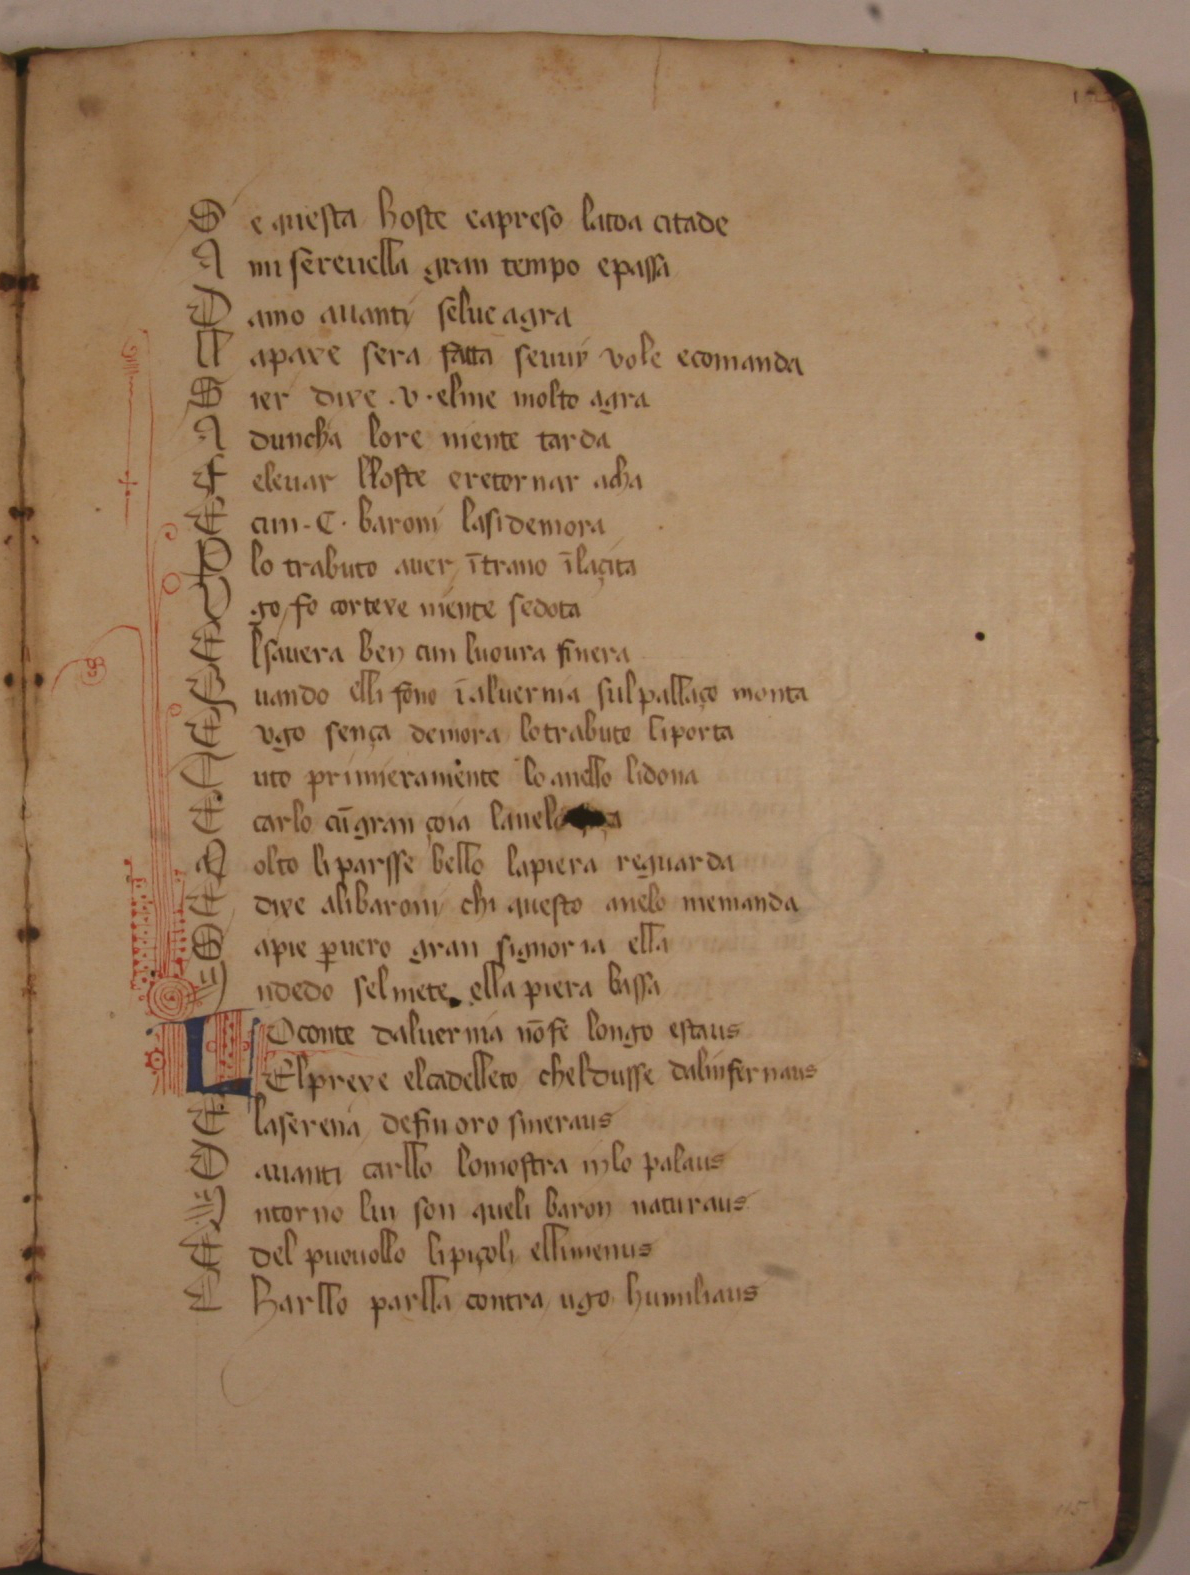 S e questa hoste eapreso latoa citade
A mi serevella gran tempo epassa
D amo auanti selue agra
ll apaxe sera fatta seuuy vole ecomanda
S ier dixe .v. elme molto agra
A duncha lore niente tarda
F eleuar lloste eretornar acha
E cun .C. baroni lasidemora
P lo trabuto auer ītrano īlaçita
V go fo cortexe niente sedota
E lsauera ben cun luoura finera
Q uando elli fōno īaluernia sulpallaço monta
E vgo sença demora lotrabuto liporta
T uto primieramente lo anello lidona
E carlo cū gran çoia
M olto liparsse bello lapiera reguarda
E dixe alibaroni chi questo anelo memanda
S apie ꝑuero gran signoria ella
I ndedo selmete ella piera bassa
L Oconte daluernia nōfe longo estaus
Elprexe elcadelleto cheldusse dalinfernaus
E laserena definoro sineraus
D auanti carllo lomostra inlo palaus
I ntorno lui son queli baron naturaus
E del puouollo lipiçoli ellimenus
C harllo parlla contra ugo humiliaus
115